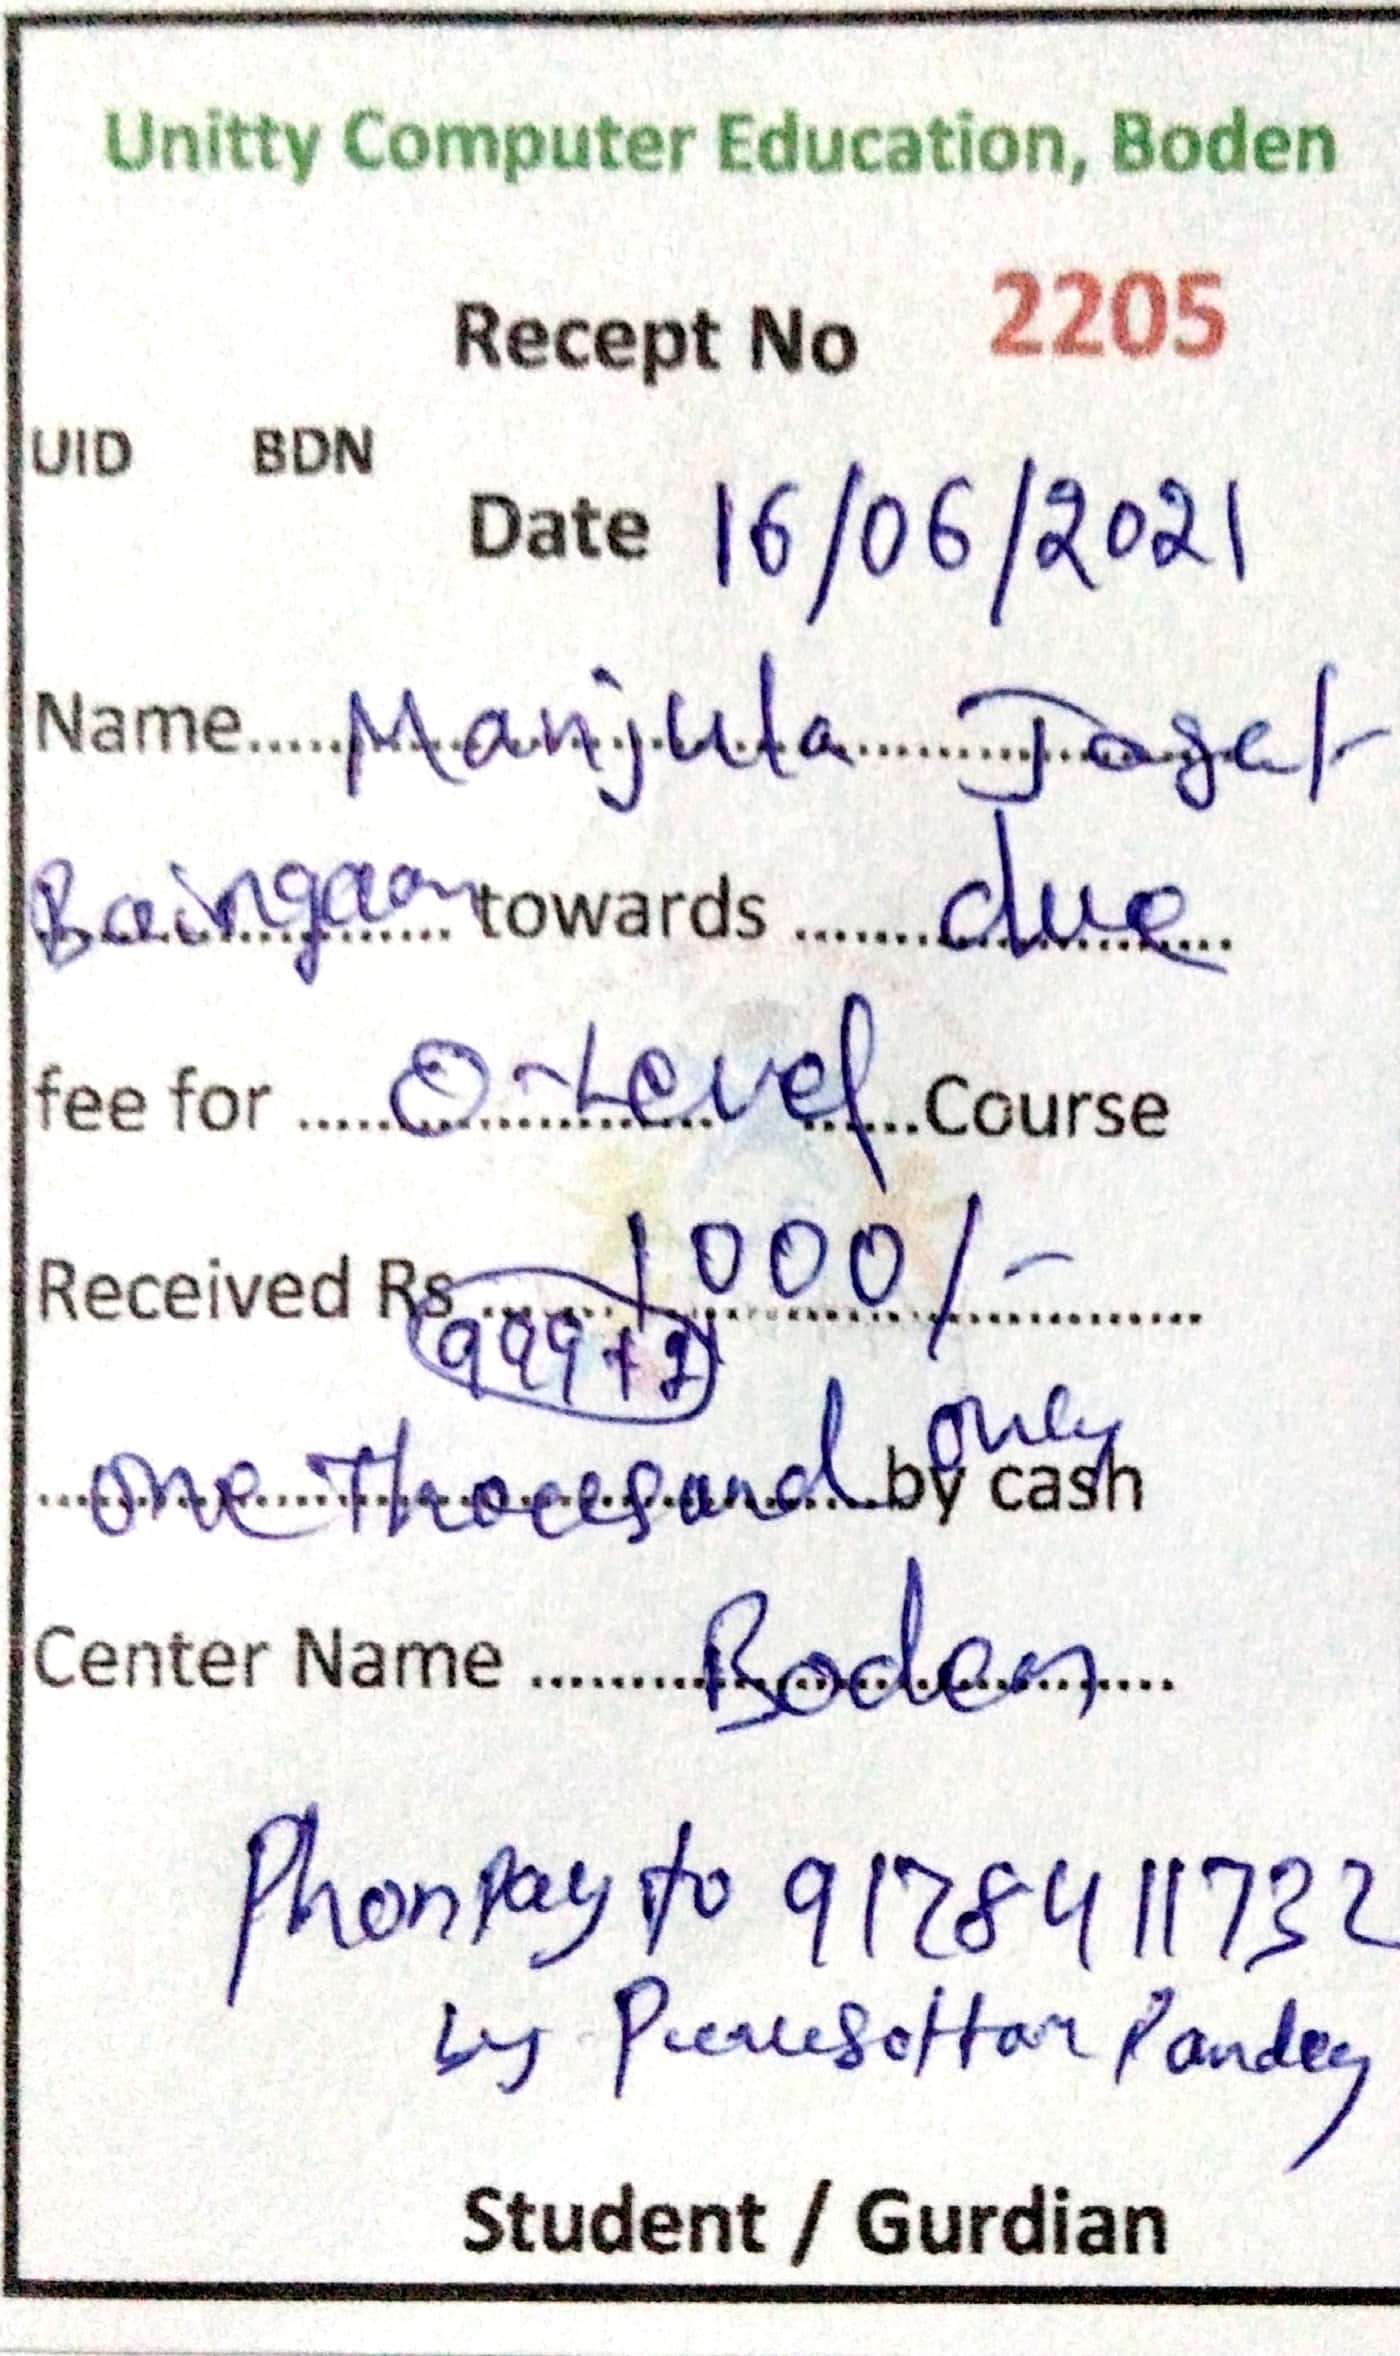 Unitty Computer Education, Boden
Recept No 2205
UID BDN
Date 16/06/2021
Name..... Manjula Jagat
Baingaon towards ....... due
fee for ..... O-Level ......Course
Received Rs ...... 1000/-
999+2
only
one Thousand by cash
Center Name ........ Boden
PhonPay to 9178411732
by Purusottam Pandey
Student / Gurdian